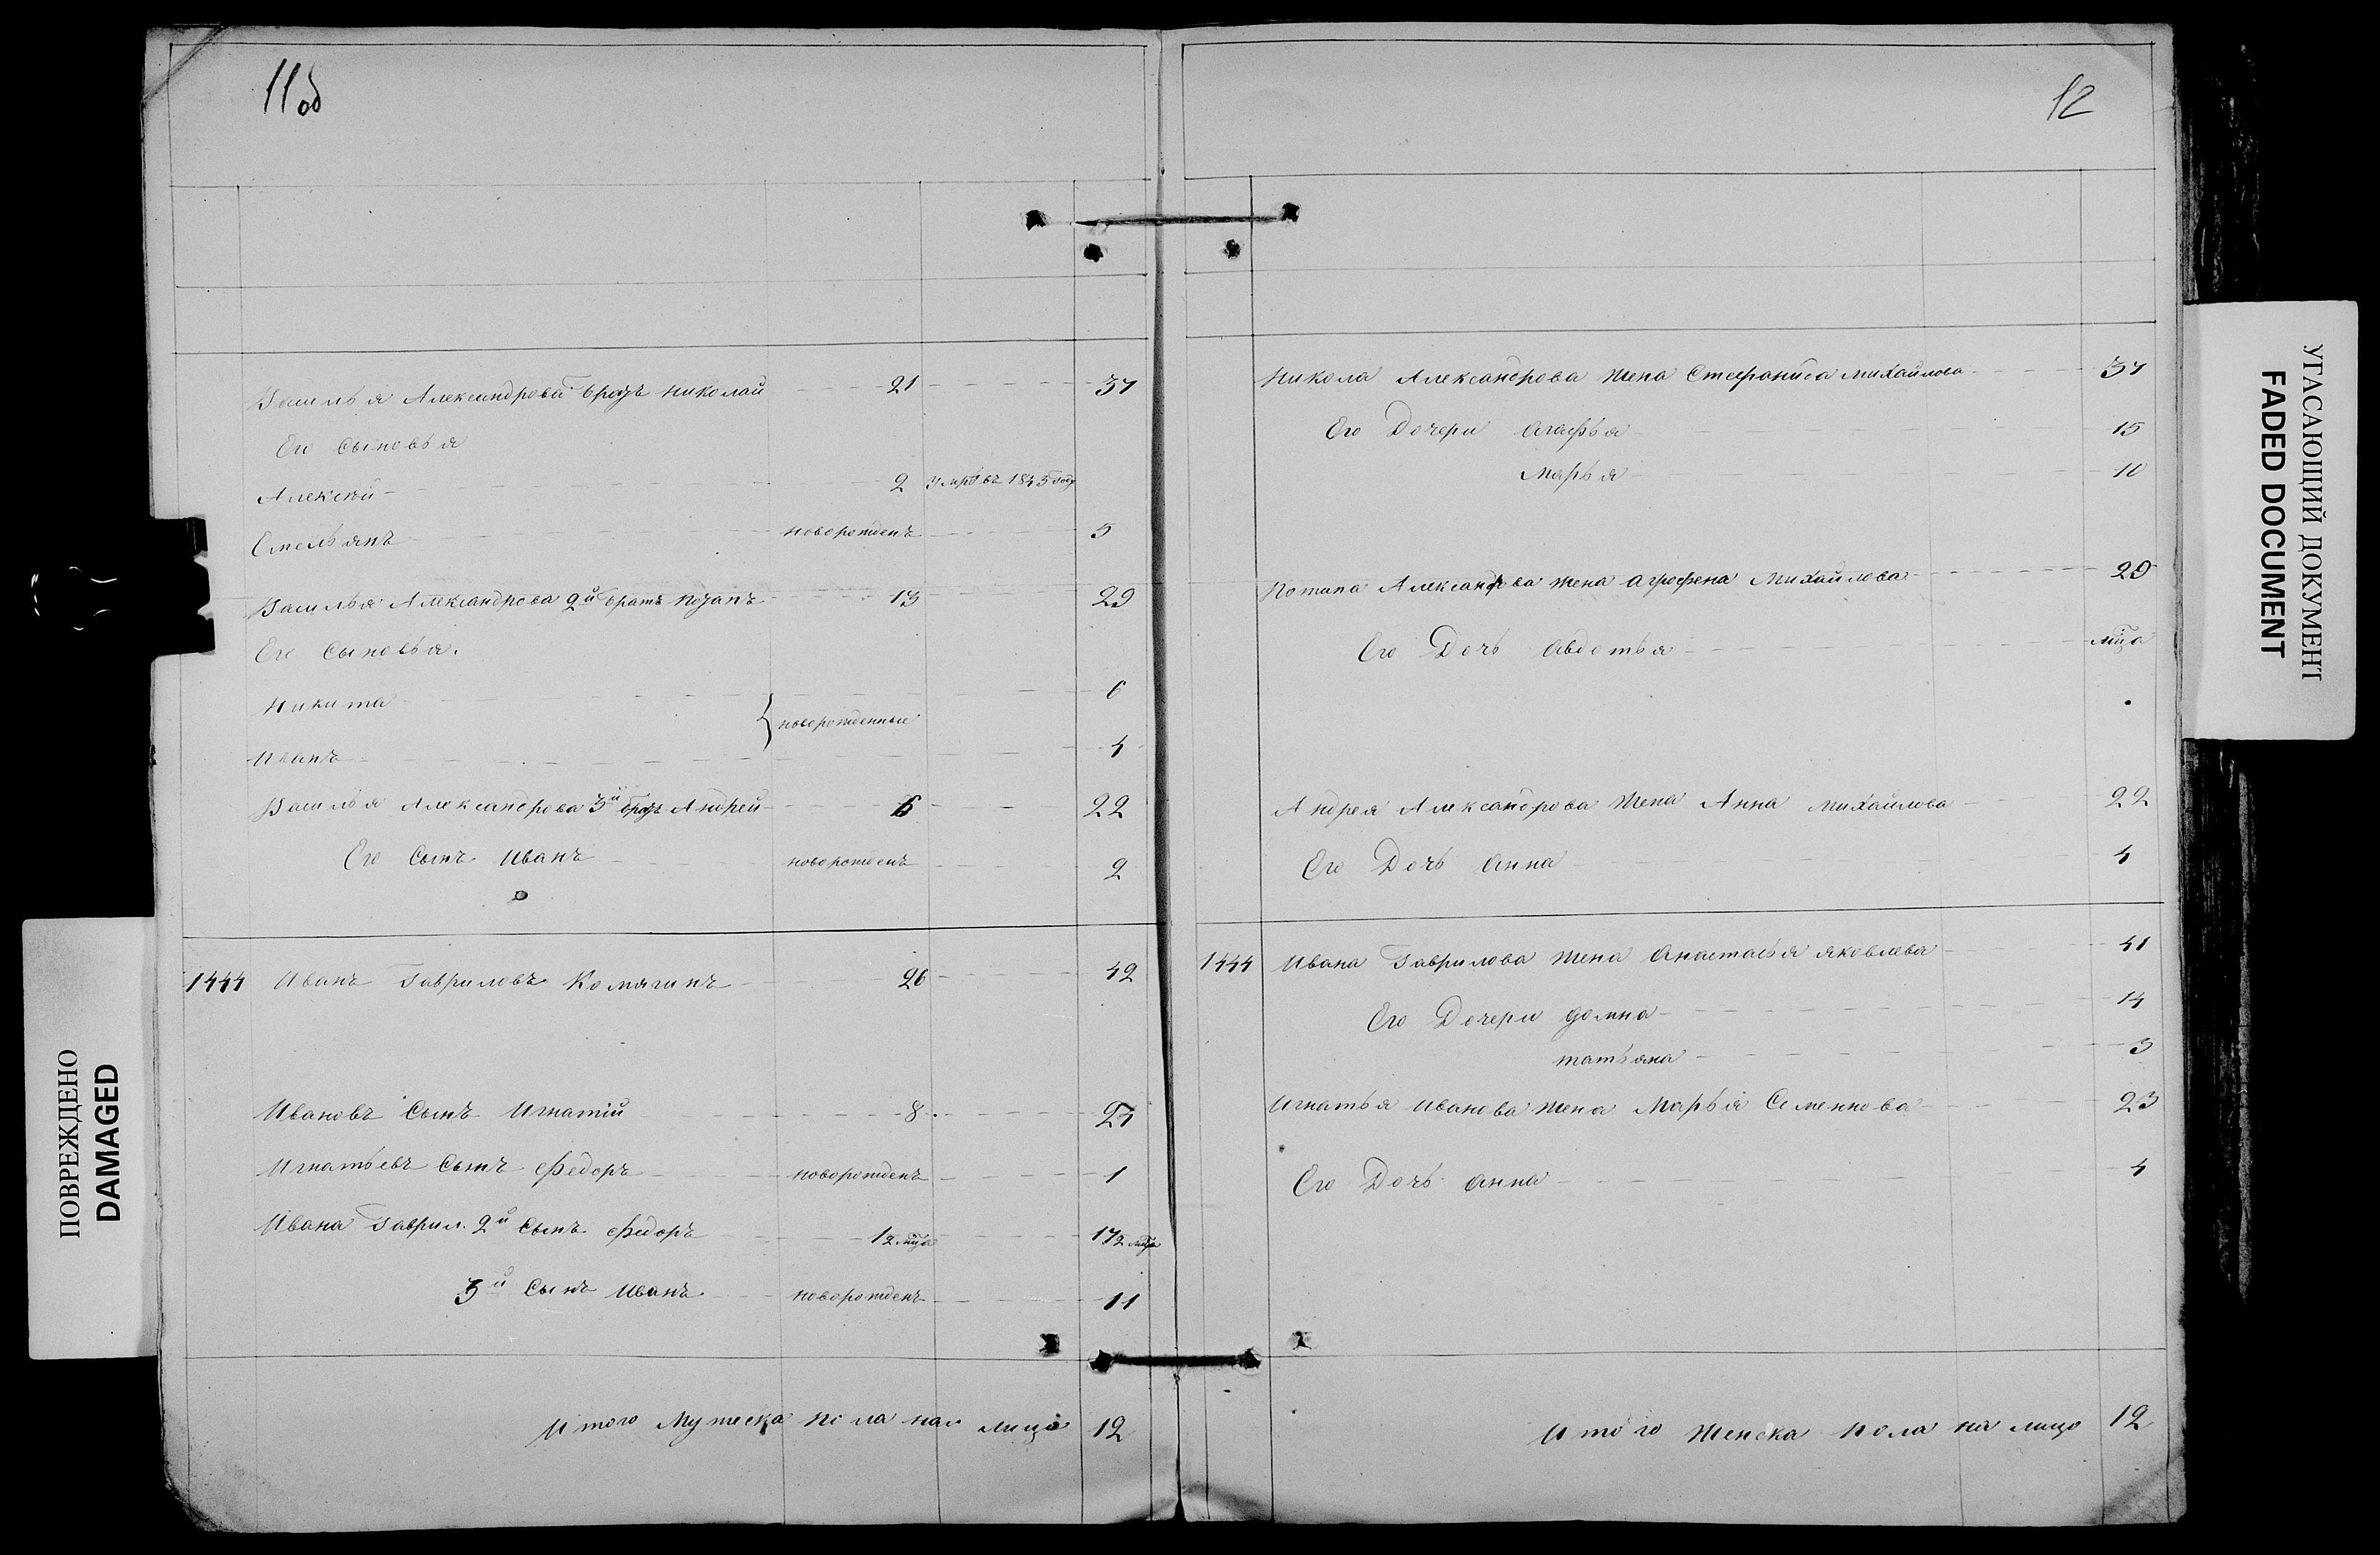 11об
Василья Александрова братъ Николай 21 37
Его сыновья
Алексѣй 2 умръ въ 1845 году
Емельянъ новорожденъ 5
Василья Александрова 2й братъ Потапъ 13 29
Его сыновья.
Никита 6
новорожденные
Иванъ 4
Василья Александрова 3й братъ Андрей 6 22
Его сынъ Иванъ новорожденъ 2
1444 Иванъ Гавриловъ Комягинъ 26 42
Ивановъ сынъ Игнатій 8 24
Игнатьевъ сынъ Федоръ новорожденъ 1
Ивана Гаврил. 2й сынъ Федоръ
3й сынъ Иванъ новорожденъ 11
Итого мужеска пола на лицо 12
12
Никола Александрова жена Степанида Михайлова 37
Его дочери Агафья 15
Марья 10
Потапа Александрова жена Агрофена Михайлова 29
Его дочь Авдотья мѣца
Андрея Александрова жена Анна Михайлова 22
Его дочь Анна 4
1444 Ивана Гаврилова жена Анастасья Яковлева 41
Его дочери Домна 14
Татьяна 3
Игнатья Иванова жена Марья Семеннова 23
Его дочь Анна 4
Итого женска пола на лицо 12
ПОВРЕЖДЕНО
DAMAGED
УГАСАЮЩИЙ ДОКУМЕНТ
FADED DOCUMENT